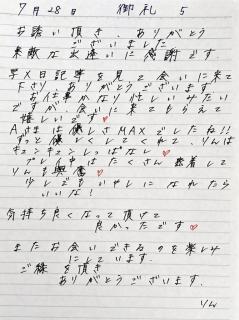 7月28日 御礼 5
お誘い頂き、ありがとう
ございました
素敵な出逢いに感謝です
写メ日記等を見て会いに来て
下さり ありがとうございます
お仕事かなり忙しいみたい
ですが、会いに来てもらえて
嬉しいです♡
Aさまは優しさMAXでしたね!!
ずっと優しくしてくれて、りんは
キュンキュンしっぱなし♡
プレイ中はたくさん密着して
りんも興奮♡
少しでもいやしになれたら
いいな!
気持ち良くなって頂けて
良かったです♡
またお会いできるのを楽しみ
にしています.
ご縁を頂き
ありがとうございます.
りん